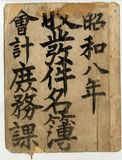 昭和八年
收發件名簿
會計庶務課